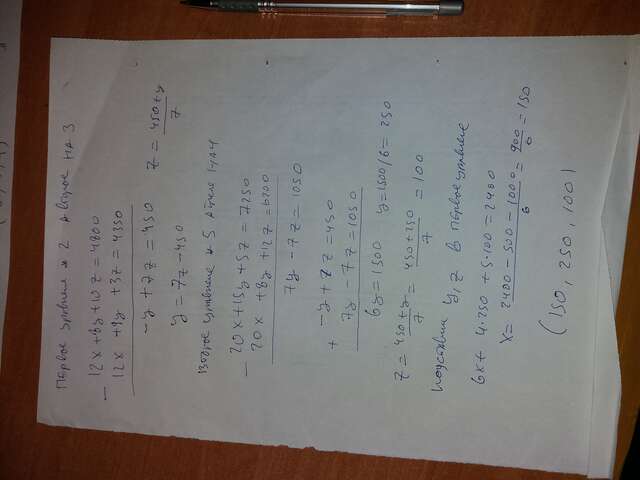 Первое уравнение * 2 а второе на 3
12x + 8y + 10z = 4800
- 12x + 9y + 3z = 4350
-y + 7z = 450 z = 450+y / 7
y = 7z - 450
Второе уравнение * 5 а третье на 4
20x + 15y + 5z = 7250
- 20x + 8y + 12z = 6200
7y - 7z = 1050
-y + 7z = 450
+ 7y - 7z = 1050
6y = 1500 y = 1500/6 = 250
z = 450+y / 7 = 450+250 / 7 = 100
подставим y, z в первое уравнение
6x + 4·250 + 5·100 = 2400
x = 2400 - 500 - 1000 / 6 = 900 / 6 = 150
(150, 250, 100)